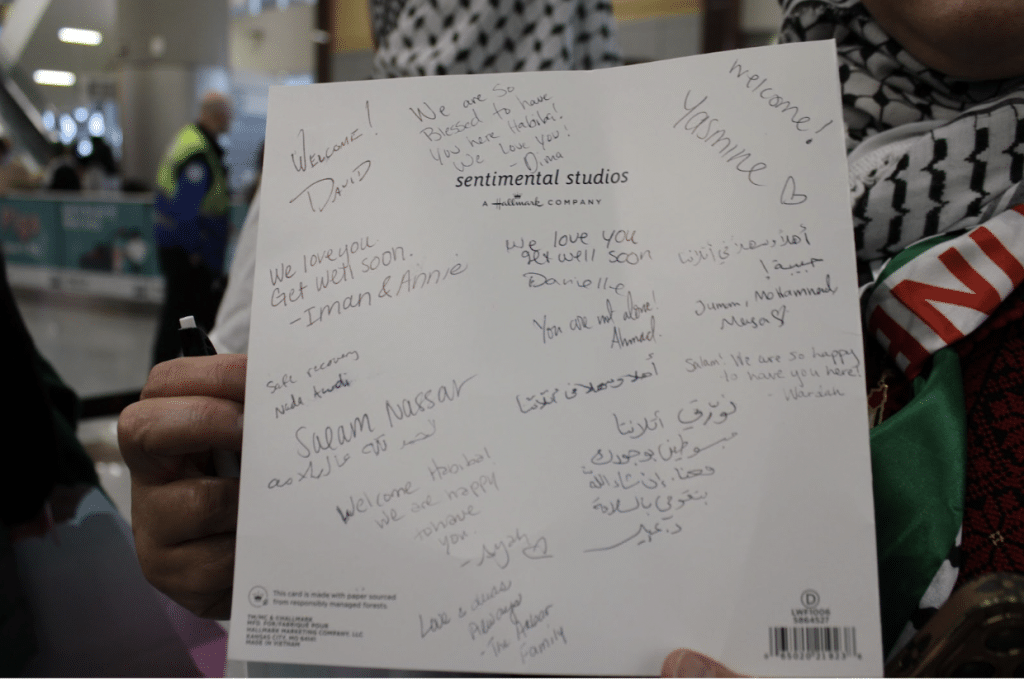 Welcome!
David
We are so
Blessed to have
you here Habibi!!
We love you!
- Dima
welcome!
Yasmine
sentimental studios
A Hallmark COMPANY
We love you.
Get well soon.
- Iman & Annie
We love you
get well soon
Danielle
أهلا وسهلا في أتلانتا
حبيبة!
Jummi, Mohammad,
Maysa
You are not alone!
Ahmad.
Safe recovery
Nada
Salam! We are so happy
to have you here!
Salam Nassar
الحمد لله عالسلامة
أهلا وسهلا في أتلانتا
نورتي أتلانتا
مبسوطين بوجودك
معنا. إن شاء الله
بتقومي بالسلامة
د. عبير
Welcome Habibal
we are happy
to have
you.
- Ayah
Love & duas
Always
- The
Family
This card is made with paper sourced
from responsibly managed forests.
TM/MC & © HALLMARK
MFG. FOR/FABRIQUÉ POUR
HALLMARK MARKETING COMPANY, LLC
KANSAS CITY, MO 64141
MADE IN VIETNAM
D
5864527
IN